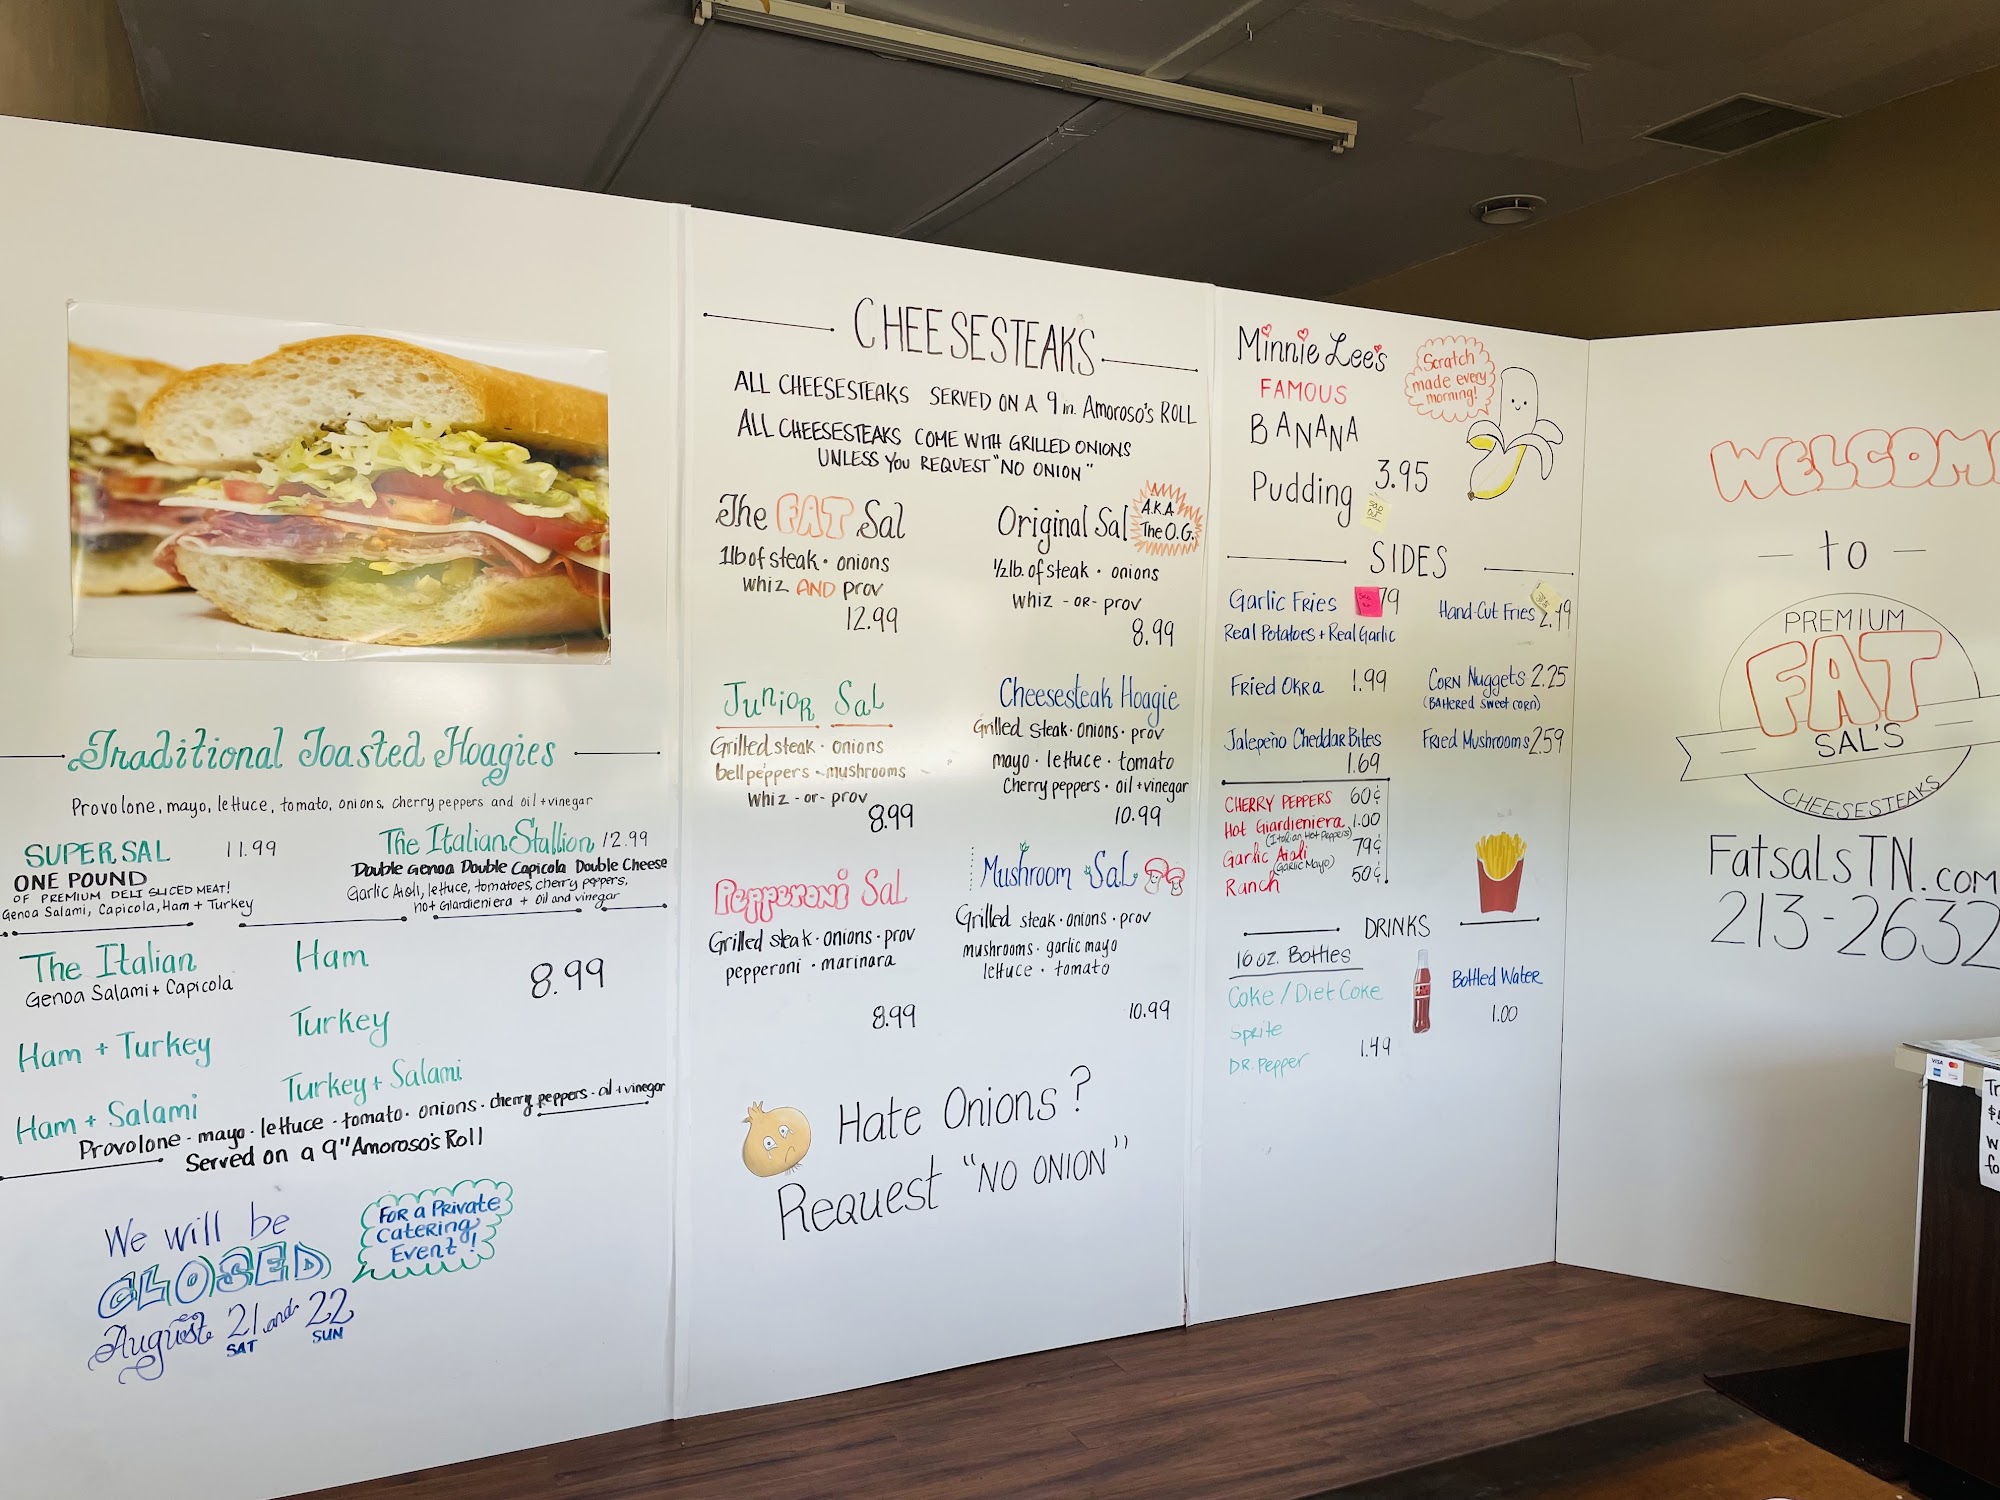 Traditional Toasted Hoagies
Provolone, mayo, lettuce, tomato, onions, cherry peppers and oil + vinegar
SUPER SAL 11.99
ONE POUND
OF PREMIUM DELI SLICED MEAT!
Genoa Salami, Capicola, Ham + Turkey
The Italian Stallion 12.99
Double Genoa Double Capicola Double Cheese
Garlic Aioli, lettuce, tomatoes, cherry peppers,
hot Giardieniera + oil and vinegar
The Italian
Genoa Salami + Capicola
Ham + Turkey
Ham + Salami
Ham
Turkey
Turkey + Salami
8.99
Provolone - mayo - lettuce - tomato - onions - cherry peppers - oil + vinegar
Served on a 9" Amoroso's Roll
We will be
CLOSED
August 21 and 22
SAT SUN
For a Private
Catering
Event!
CHEESESTEAKS
ALL CHEESESTEAKS SERVED ON A 9 in. Amoroso's ROLL
ALL CHEESESTEAKS COME WITH GRILLED ONIONS
UNLESS YOU REQUEST "NO ONION"
The FAT Sal
1lb of steak · onions
whiz AND prov
12.99
Original Sal
A.K.A.
The O.G.
1/2lb. of steak · onions
whiz - or - prov
8.99
Junior Sal
Grilled steak · onions
bell peppers - mushrooms
whiz - or - prov
8.99
Cheesesteak Hoagie
Grilled steak · onions · prov
mayo · lettuce · tomato
Cherry peppers · oil + vinegar
10.99
Pepperoni Sal
Grilled steak · onions · prov
pepperoni · marinara
8.99
Mushroom Sal
Grilled steak · onions · prov
mushrooms · garlic mayo
lettuce · tomato
10.99
Hate Onions?
Request "NO ONION"
Minnie Lee's
FAMOUS
BANANA
Pudding 3.95
SOLD OUT
Scratch
made every
morning!
SIDES
Garlic Fries 79
Real Potatoes + Real Garlic
Hand-Cut Fries 2.49
Fried Okra 1.99
Corn Nuggets 2.25
(Battered sweet corn)
Jalepeño Cheddar Bites
1.69
Fried Mushrooms 2.59
CHERRY PEPPERS 60¢
Hot Giardieniera 1.00
(Italian Hot Peppers)
Garlic Aioli 79¢
(Garlic Mayo)
Ranch 50¢
DRINKS
16 oz. Bottles
Coke / Diet Coke
Sprite
DR. Pepper
1.49
Bottled Water
1.00
WELCOME
- to -
PREMIUM
FAT
SAL'S
CHEESESTEAKS
FatsalsTN.com
213-2632
VISA